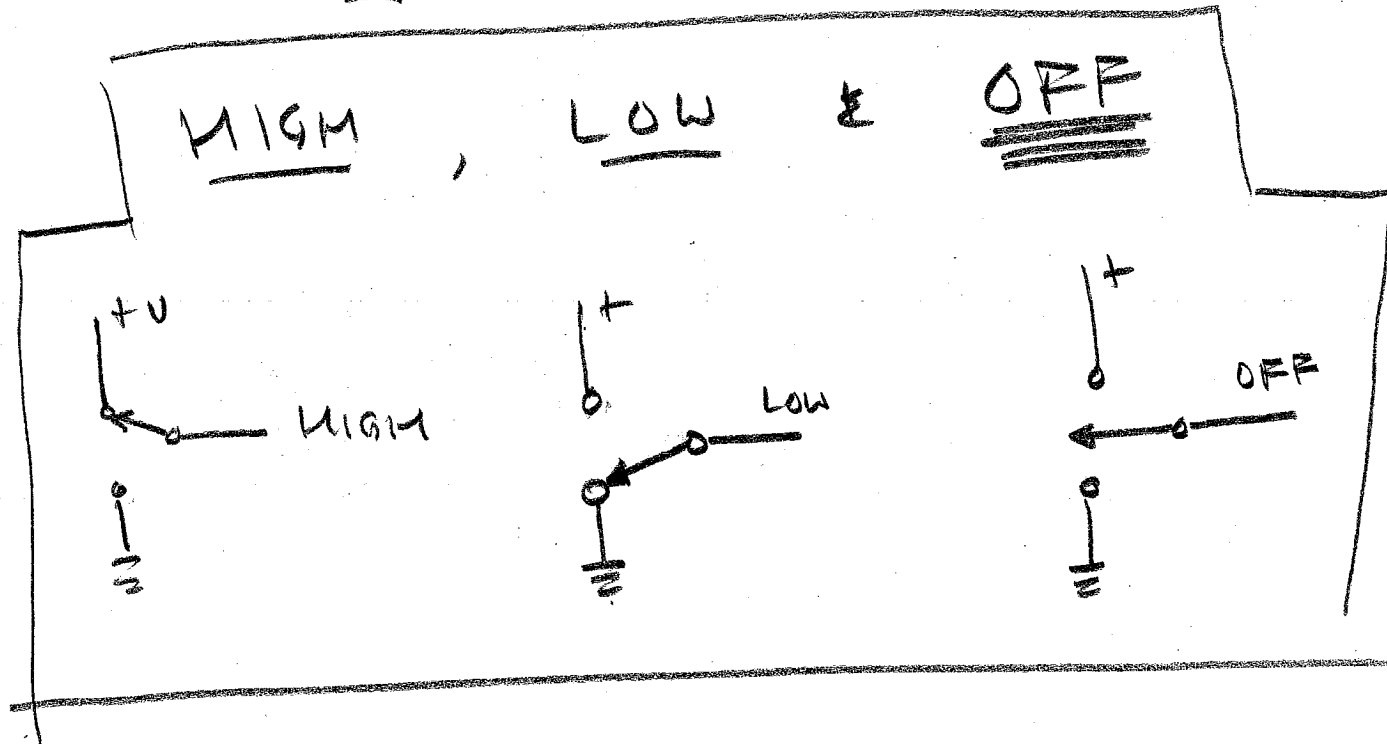 HIGH, LOW & OFF
+V + +
HIGH LOW OFF